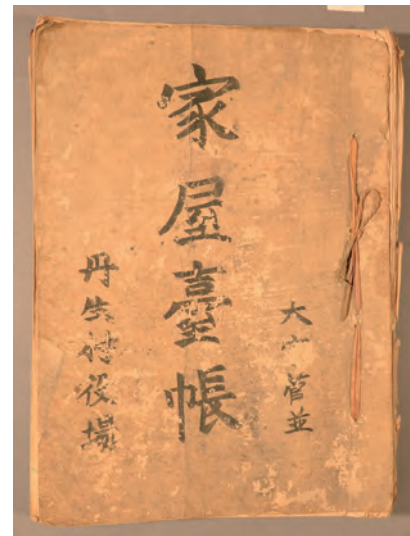 大字菅並
家屋臺帳
丹生村役場